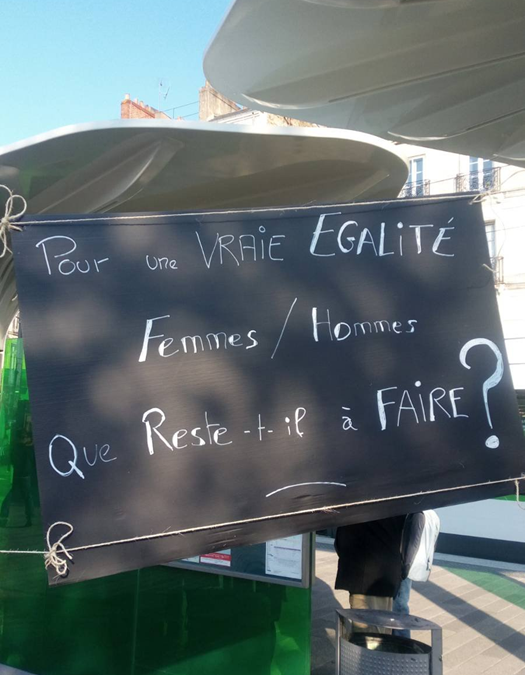 Pour une VRAIE EGALITÉ
Femmes / Hommes
Que Reste-t-il à FAIRE ?